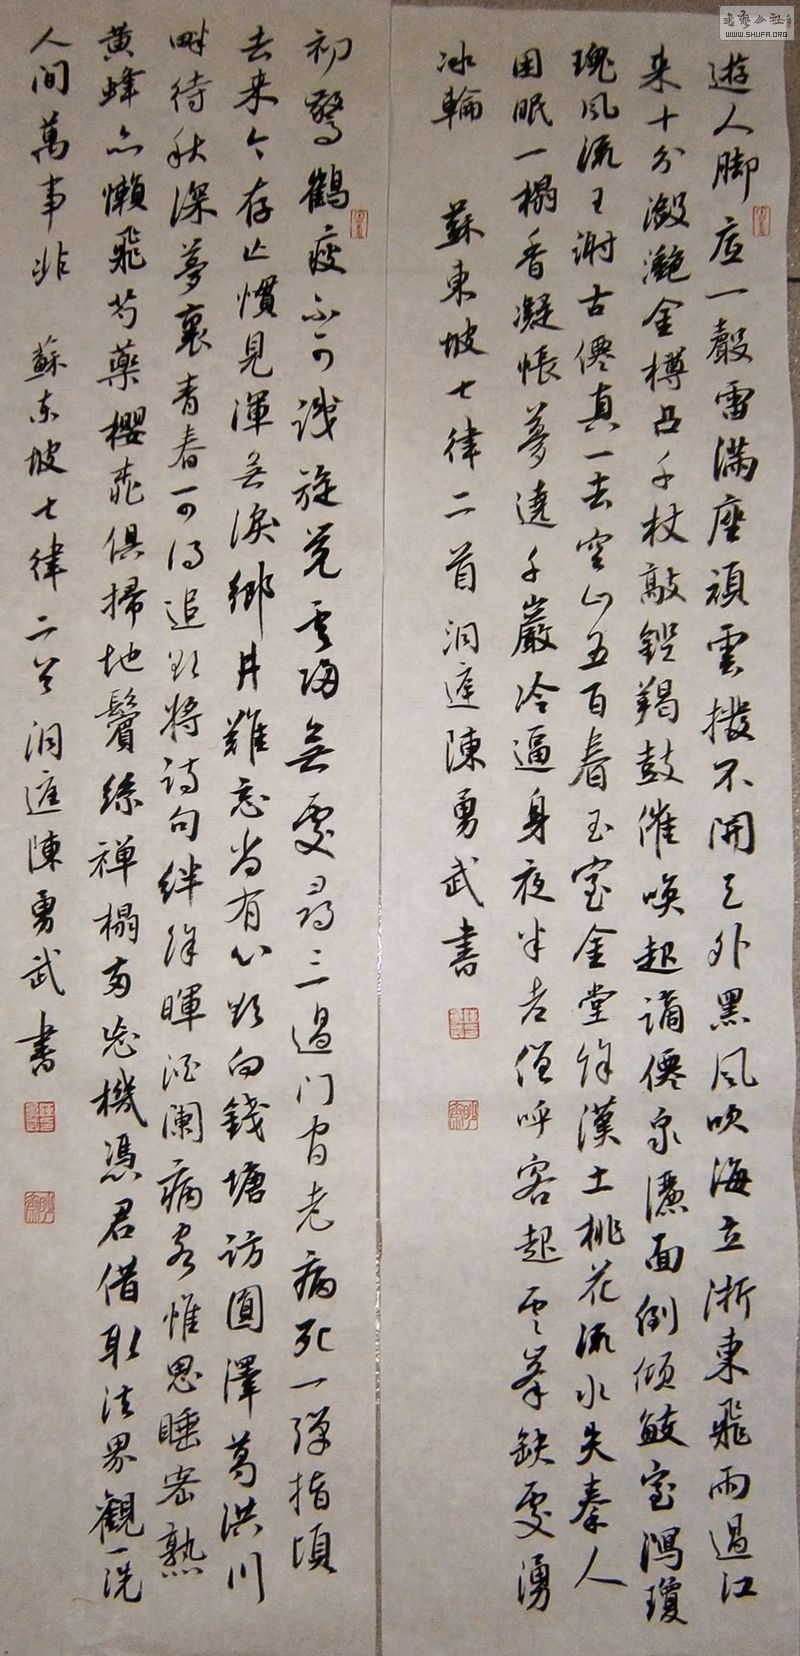 遊人脚底一聲雷滿座頑雲撥不開天外黑風吹海立浙東飛雨過江
来十分瀲灧金樽凸千杖敲鏗羯鼓催喚起謫僊泉灑面倒傾鮫室瀉瓊
瑰風流王謝古僊真一去空山五百春玉室金堂餘漢士桃花流水失秦人
困眠一榻香凝帳夢遶千巖冷逼身夜半老僧呼客起雲峯缺處湧
冰輪 蘇東坡七律二首洞庭陳勇武書
初驚鶴瘦不可識旋覺雲歸無處尋三過門间老病死一彈指頃
去来今存亡慣見渾無淚鄉井難忘尚有心欲向錢塘訪圓澤葛洪川
畔待秋深夢裏青春可得追欲將詩句絆餘暉酒闌病客惟思睡蜜熟
黄蜂亦懶飛芍藥櫻桃俱掃地鬢絲禅榻两忘機憑君借取法界觀一洗
人间萬事非 蘇东坡七律二首洞庭陳勇武書
書藝公社
WWW.SHUFA.ORG